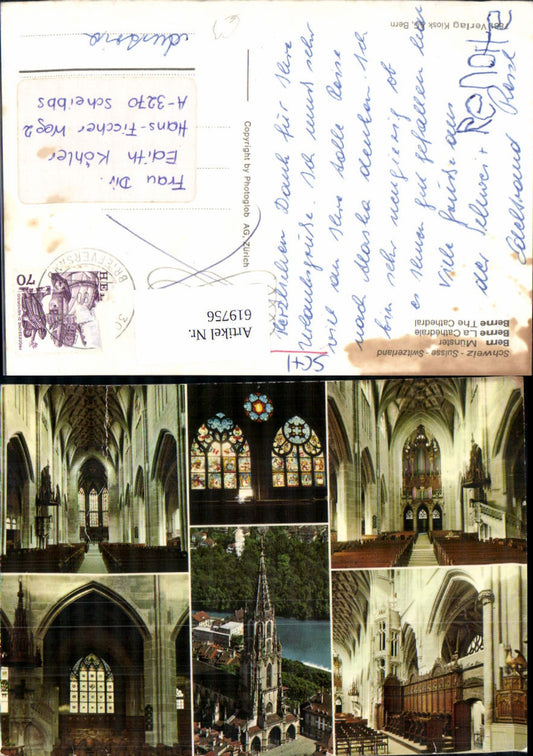 Schweiz - Suisse - Switzerland
Bern Münster
Berne La Cathédral
Berne The Cathedral
Herzlichen Dank für Ihre
Urlaubsgrüße. Ich muss sehr
viel an Ihre tolle Reise
nach Alaska denken. Ich
bin sehr neugierig ob
es Ihnen gut gefallen hat
Viele Grüße aus
der Schweiz
Edeltraud
Copyright by Photoglob AG, Zürich
Verlag Kiosk AG, Bern
HELVETIA
70
BRIEFVERSAND
30
Frau Dir.
Edith Köhler
Hans-Fischer Weg 2
A-3270 Scheibbs
Austria
Artikel Nr.
619756